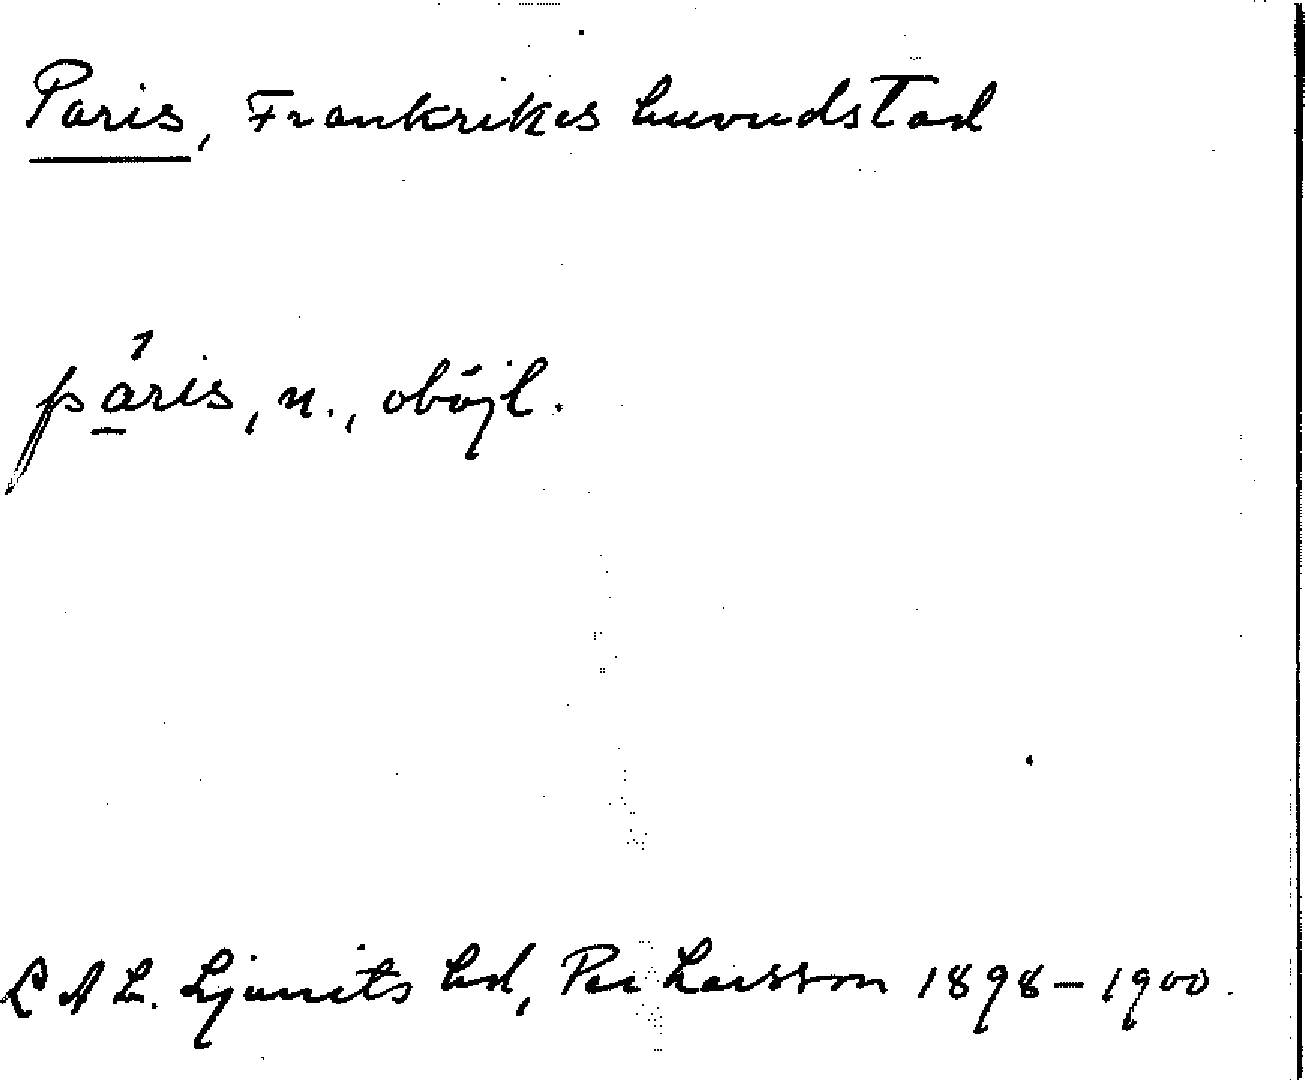 Paris, Frankrikes huvudstad
páris, n., oböjl.
L A L. Ljunits hd, Per Larsson 1898–1900.